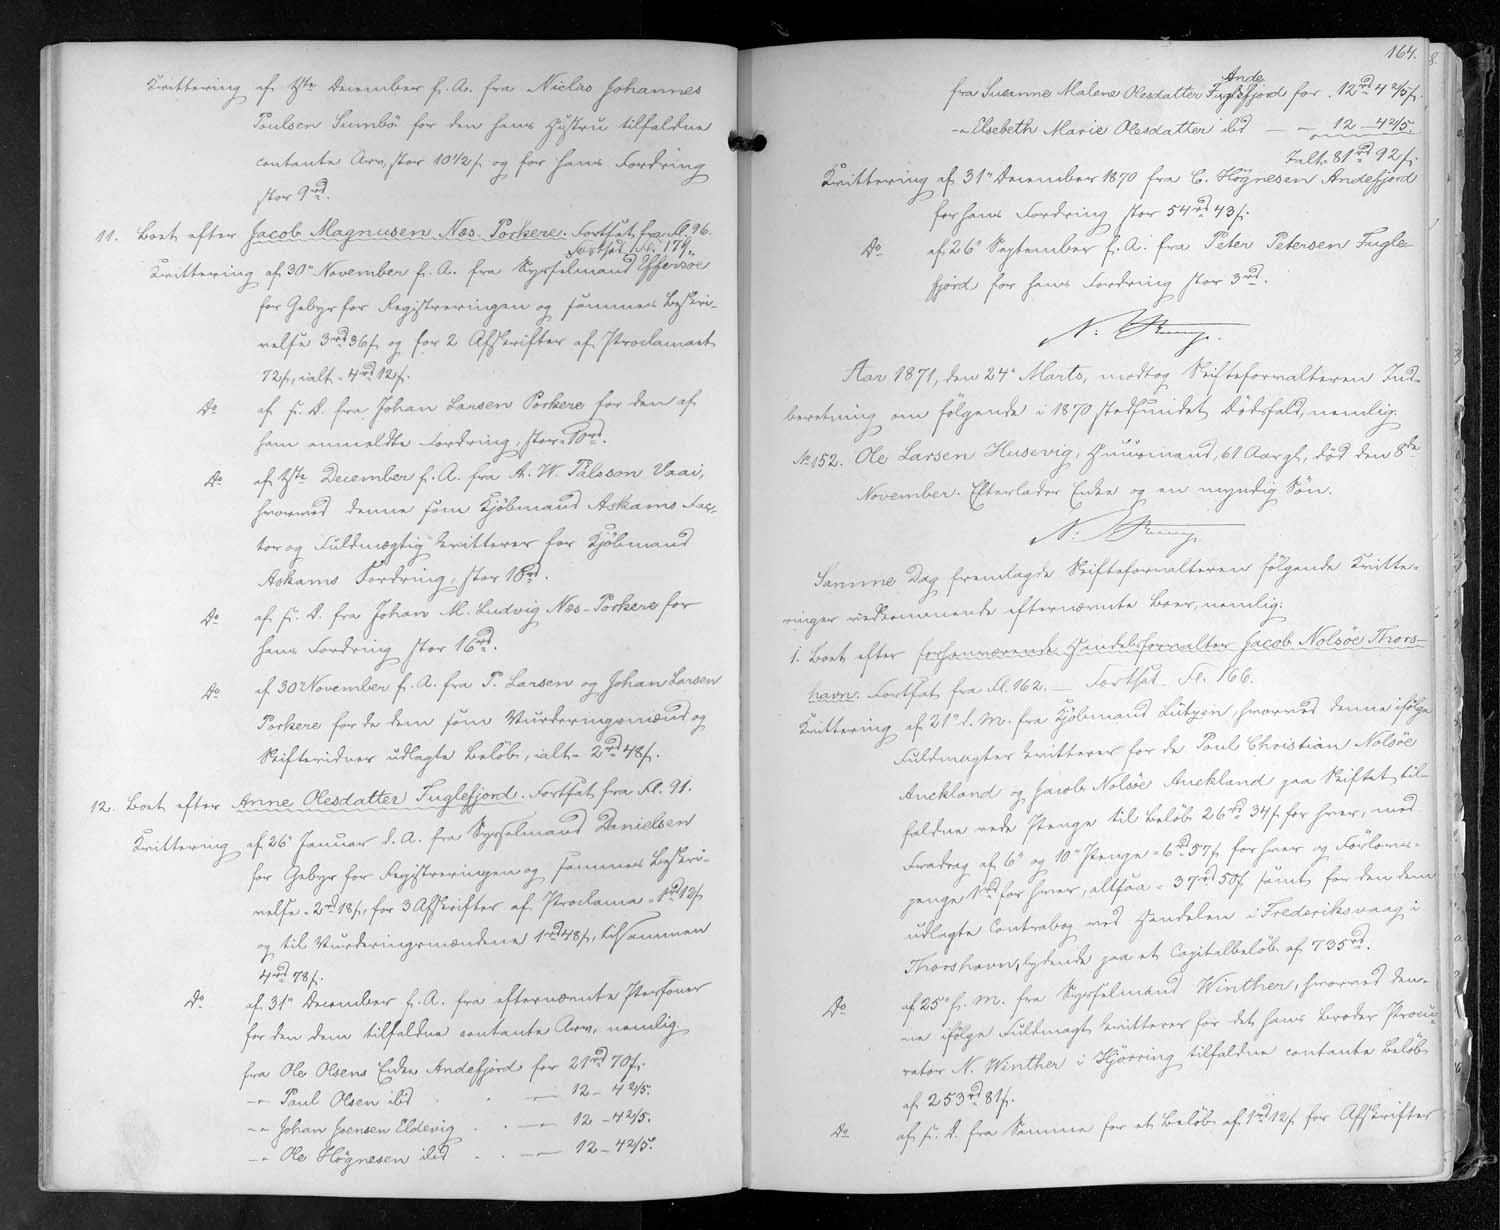 Kvittering af 1ste December f. A. fra Niclas Johannes
Poulsen Sumbö for den hans Hustru tilfaldne
contante Arv, stor 10 1/2 ſ. og for hans Fordring
stor 9rd.
11. Boet efter Jacob Magnusen Næs-Porkere. Fortsat fra Fl. 96.
Fortsat Fl. 174.
Kvittering af 30te November f. A. fra Sysselmand Effersöe
for Gebyr for Registreringen og sammes Beskri-
velse 3rd 36ſ. og for 2 Afskrifter af Proclamaet
72ſ., ialt = 4rd 12ſ.
Do af s. D. fra Johan Larsen Porkere for den af
ham anmeldte Fordring, stor 10rd.
Do af 1ste December f. A. fra A. W. Pålsson Vaai,
hvorved denne som Kjöbmand Askams Fac-
tor og Fuldmægtig kvitterer for Kjöbmand
Askams Fordring, stor 18rd.
Do af s. D. fra Johan M. Ludvig Næs-Porkere for
hans Fordring stor 16rd.
Do af 30 November f. A. fra P. Larsen og Johan Larsen
Porkere for de dem som Vurderingsmænd og
Skiftevidner udlagte Beløb, ialt = 2rd 48ſ.
12. Boet efter Anne Olesdatter Fuglefjord. Fortsat fra Fl. 91.
Kvittering af 26te Januar d. A. fra Sysselmand Danielsen
for Gebyr for Registreringen og sammes Beskri-
velse = 2rd 18ſ., for 3 Afskrifter af Proclama = 1rd 12ſ.
og til Vurderingsmændene 1rd 48ſ., tilsammen
4rd 78ſ.
Do af 31te December f. A. fra efternævnte Personer
for den dem tilfaldne contante Arv, nemlig
fra Ole Olsens Enke Andefjord for 21rd 70ſ.
-"- Paul Olsen ibid . . -"- 12 - 4 2/5.
-"- Johan Joensen Eldevig . . -"- 12 - 4 2/5.
-"- Ole Högnesen ibid . . -"- 12 - 4 2/5.
164.
Ande
fra Susanne Malene Olesdatter Fuglefjord for . 12rd 4 2/5ſ.
-"- Elsebeth Marie Olesdatter ibid -"- 12 - 4 2/5.
Ialt = 81rd 92ſ.
Kvittering af 31te December 1870 fra C. Högnesen Andefjord
for hans Fordring stor 54rd 43ſ.
Do af 26te September f. A. fra Peter Petersen Fugle-
fjord for hans Fordring stor 3rd.
Aar 1871, den 24de Marts, modtog Skifteforvalteren Ind-
beretning om fölgende i 1870 stedfundet Dödsfald, nemlig:
No 152. Ole Larsen Husevig, Huusmand, 61 Aar gl., död den 8de
November. Efterlader Enke og en myndig Sön.
Samme Dag fremlagde Skifteforvalteren fölgende Kvitte-
ringer vedkommende efternævnte Boer, nemlig:
1. Boet efter forhenværende Handelsforvalter Jacob Nolsöe Thors-
havn. Fortsat fra Fl. 162. - Fortsat Fl. 166.
Kvittering af 21de d. M. fra Kjöbmand Lützen, hvorved denne ifölge
Fuldmagter kvitterer for de Poul Christian Nolsöe
Auckland og Jacob Nolsöe Auckland paa Skiftet til-
faldne rede Penge til Belöb 26rd 34ſ. for hver, med
Fradrag af 6te og 10de Penge = 6rd 57ſ. for hver og Förlovs-
penge 1rd for hver, altsaa = 37rd 50ſ. samt for den dem
udlagte Contrabog ved Handelen i Frederiksvaag i
Thorshavn, lydende paa et Capitalbelöb af 735rd.
Do af 25de f. M. fra Sysselmand Winther, hvorved den-
ne ifölge Fuldmagt kvitterer for det hans Broder Procu-
rator N. Winther i Hjörring tilfaldne contante Belöb
af 253rd 81ſ.
Do af s. D. fra Samme for et Belöb af 1rd 12ſ. for Afskrifter